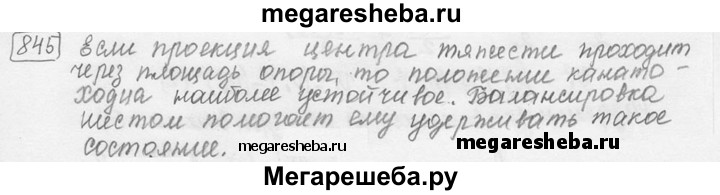 megaresheba.ru
845 Если проекция центра тяжести проходит
через площадь опоры, то положение канато-
ходца наиболее устойчивое. Балансировка
шестом помогает ему удерживать такое
состояние. megaresheba.ru megaresheba.ru
Мегарешеба.ру